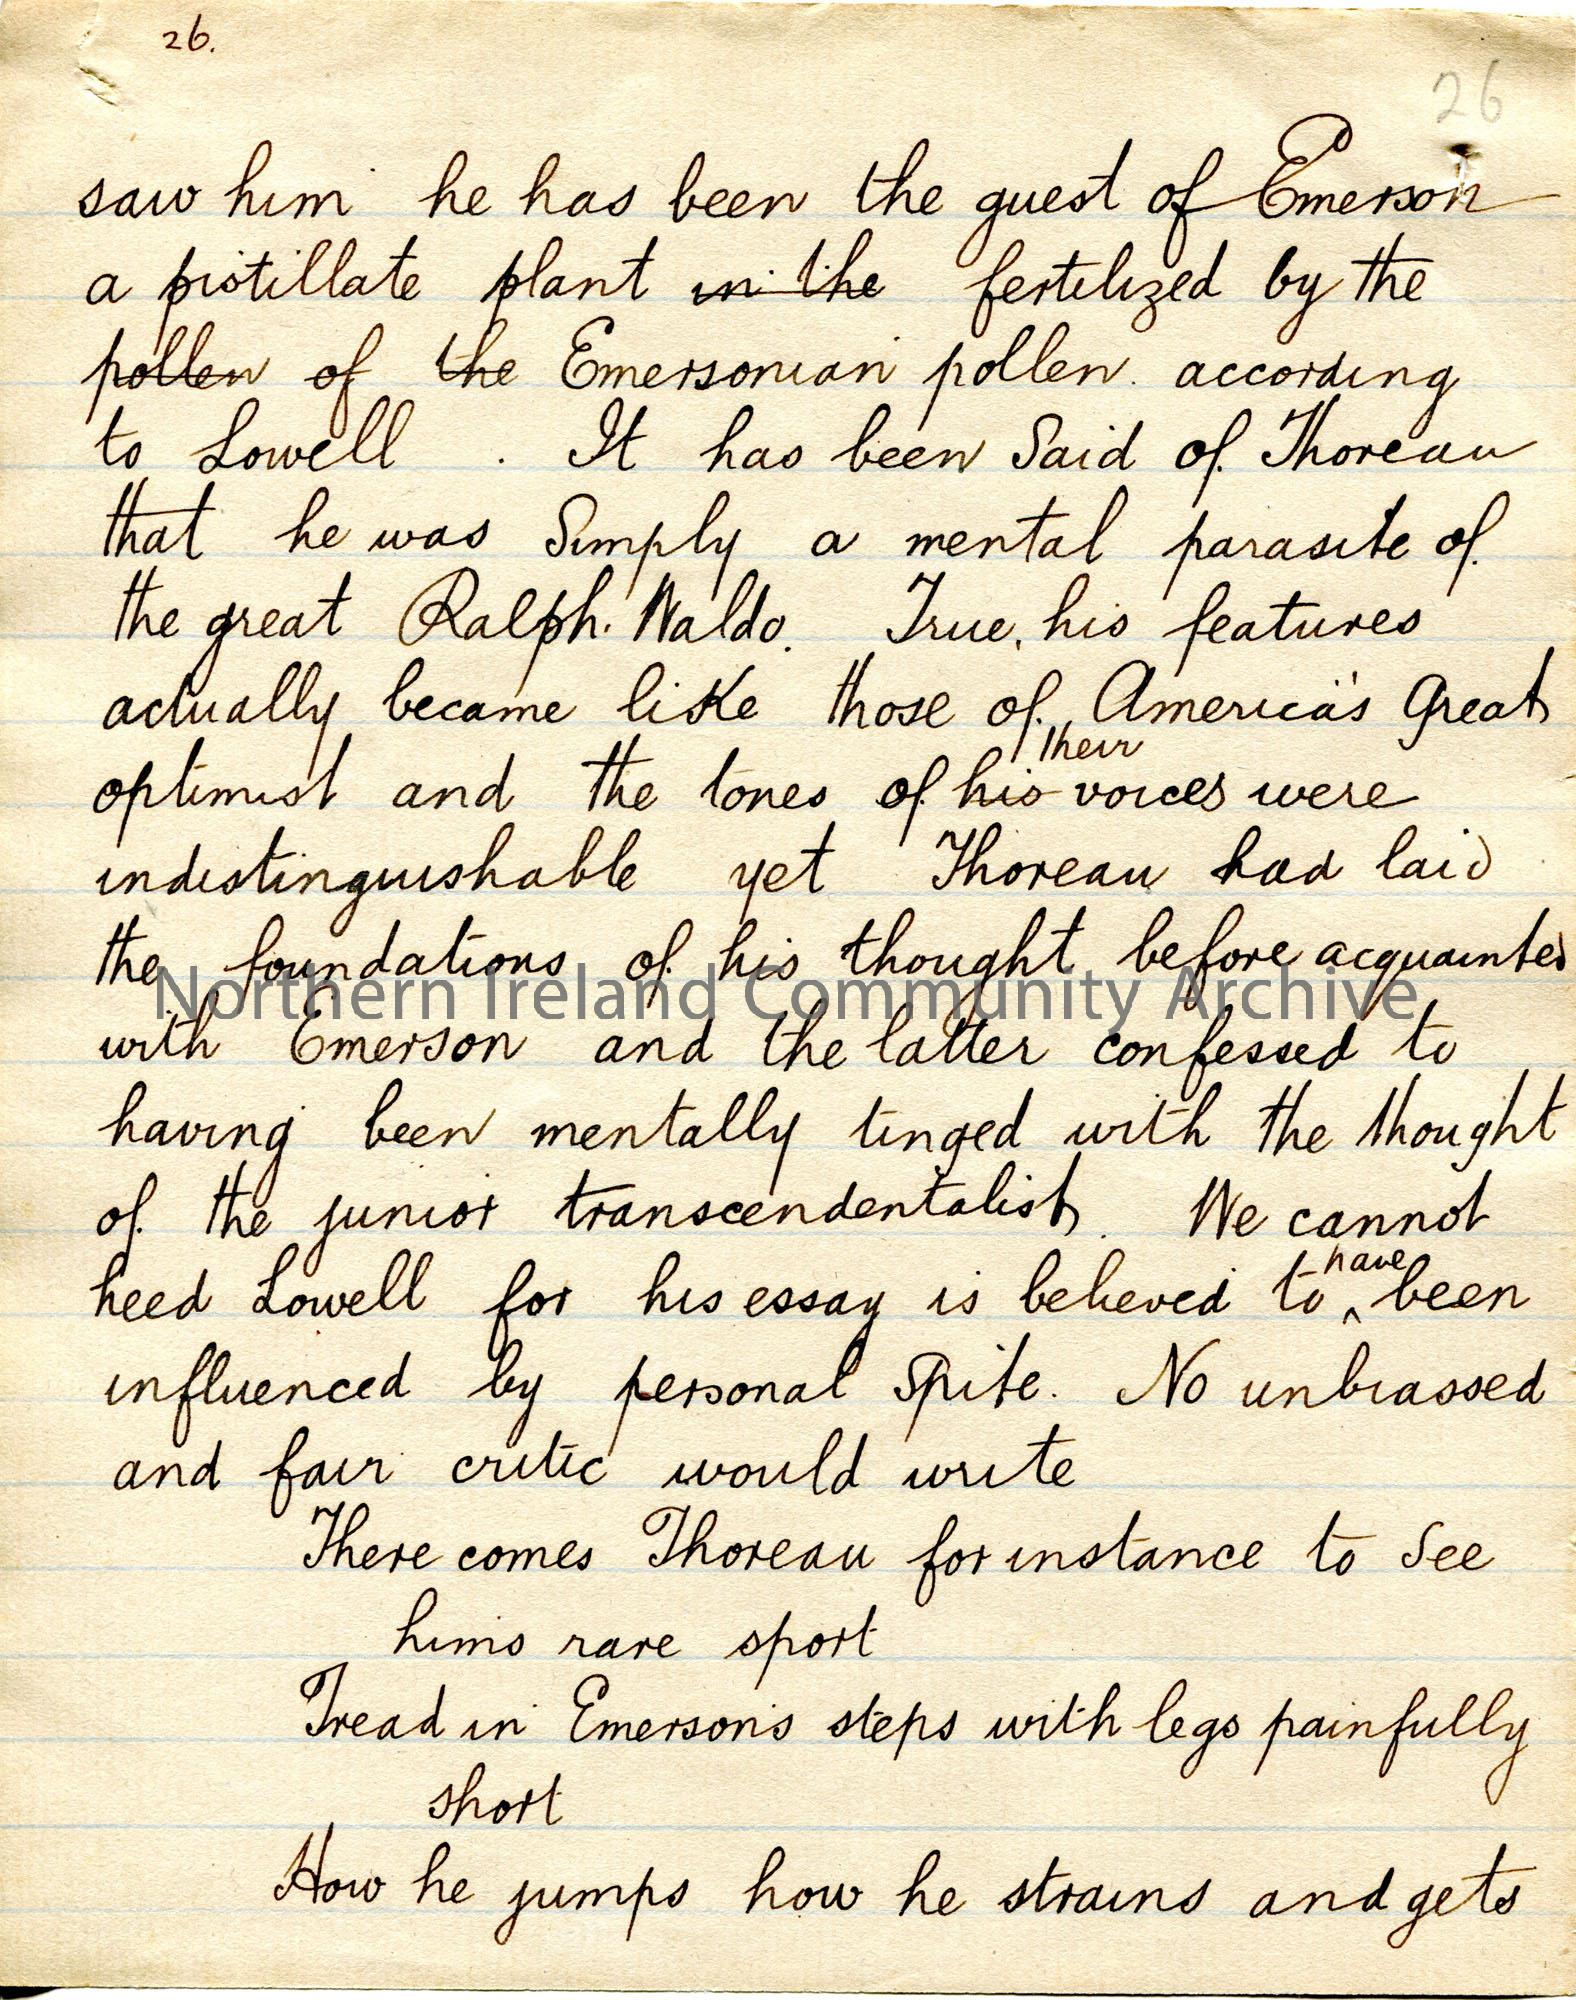 26.
26
saw him he has been the guest of Emerson
a pistillate plant in the fertilized by the
pollen of the Emersonian pollen. according
to Lowell . It has been Said of Thoreau
that he was Simply a mental parasite of
the great Ralph. Waldo. True, his features
actually became like those of America's Great
optimist and the tones of his their voices were
indistinguishable yet Thoreau had laid
the foundations of his thought before acquainted
Northern Ireland Community Archive
with Emerson and the latter confessed to
having been mentally tinged with the thought
of the junior transcendentalist. We cannot
heed Lowell for his essay is believed to have been
influenced by personal Spite. No unbiassed
and fair critic would write
There comes Thoreau for instance to See
hims rare sport
Tread in Emersons steps with legs painfully
short
How he jumps how he strains and gets